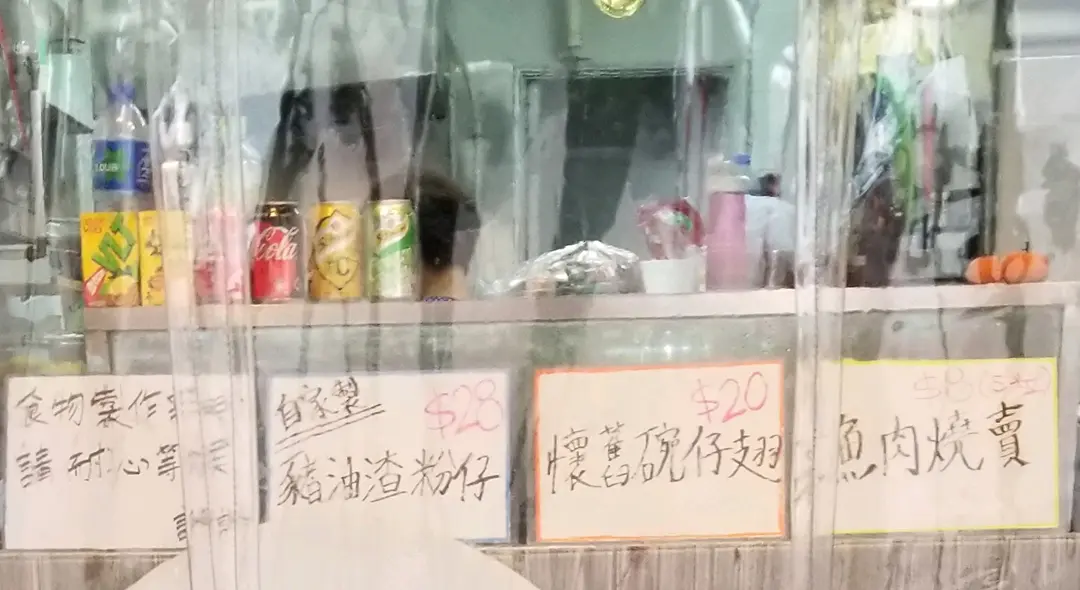 食物製作
請耐心等
自家製
$28
豬油渣粉仔
$20
懷舊碗仔翅
魚肉燒賣
Cola